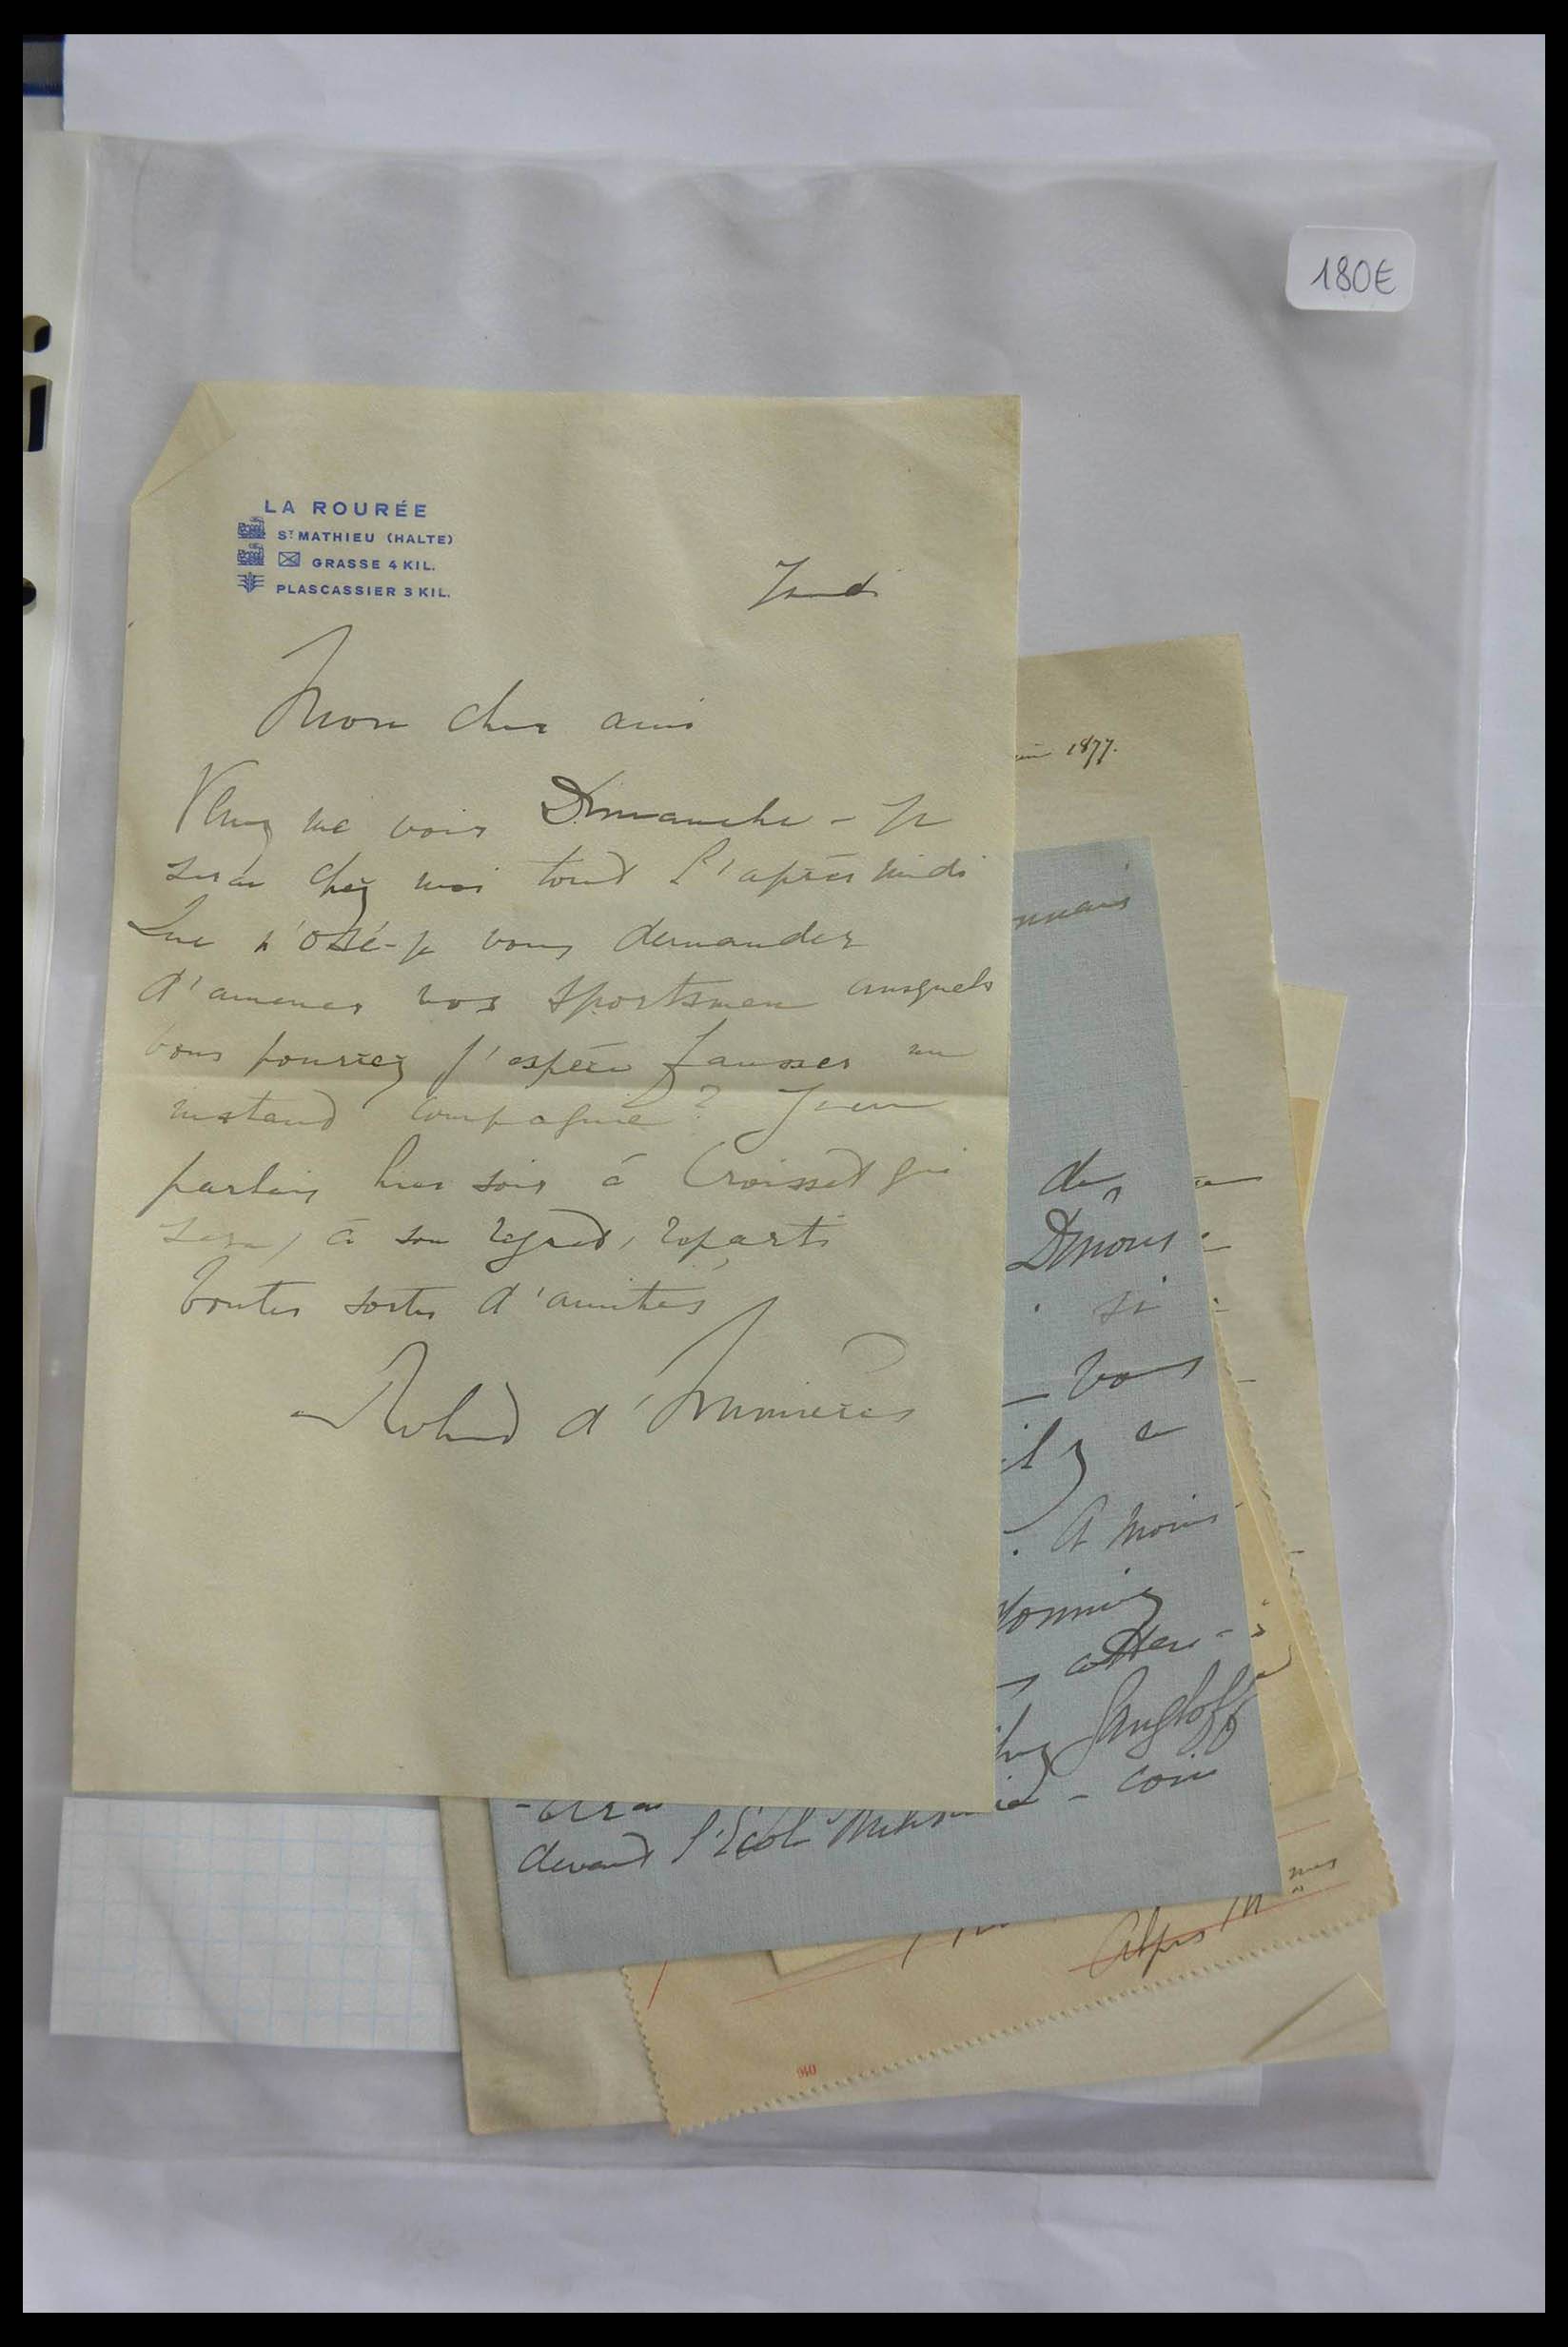 180€
LA ROURÉE
ST MATHIEU (HALTE)
GRASSE 4 KIL.
PLASCASSIER 3 KIL.
Jeudi
Mon cher ami
Venez me voir Dimanche - Je
serai chez moi tout l'après midi
Que n'osé-je vous demander
d'amener vos sportsmen auxquels
vous pourrez j'espère fausser un
instant compagnie ? J'en
parlais hier soir à Croisset qui
sera, à son regret, reparti
Toutes sortes d'amitiés
Robert d'Humières
1877.
de
si
vous
il y a
. A moins
Langloff
- coin
devant l'Ecole
Alpes Mmes
940